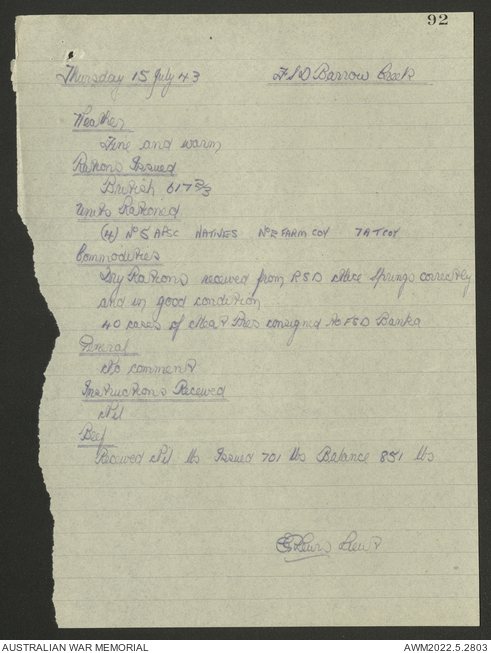 92
Thursday 15 July 43 FSD Barrow Creek
Weather
Fine and warm
Rations Issued
British 617 2/3
Units Rationed
(4) No 5 APSC NATIVES No 2 FARM COY 7 AT COY
Commodities
Dry Rations received from RSD Alice Springs correctly
and in good condition
40 cases of Meat Pies consigned to FSD Banka
General
No comment
Instructions Received
Nil
Beef
Received Nil lbs Issued 701 lbs Balance 851 lbs
Lewis Lieut
AUSTRALIAN WAR MEMORIAL AWM2022.5.2803